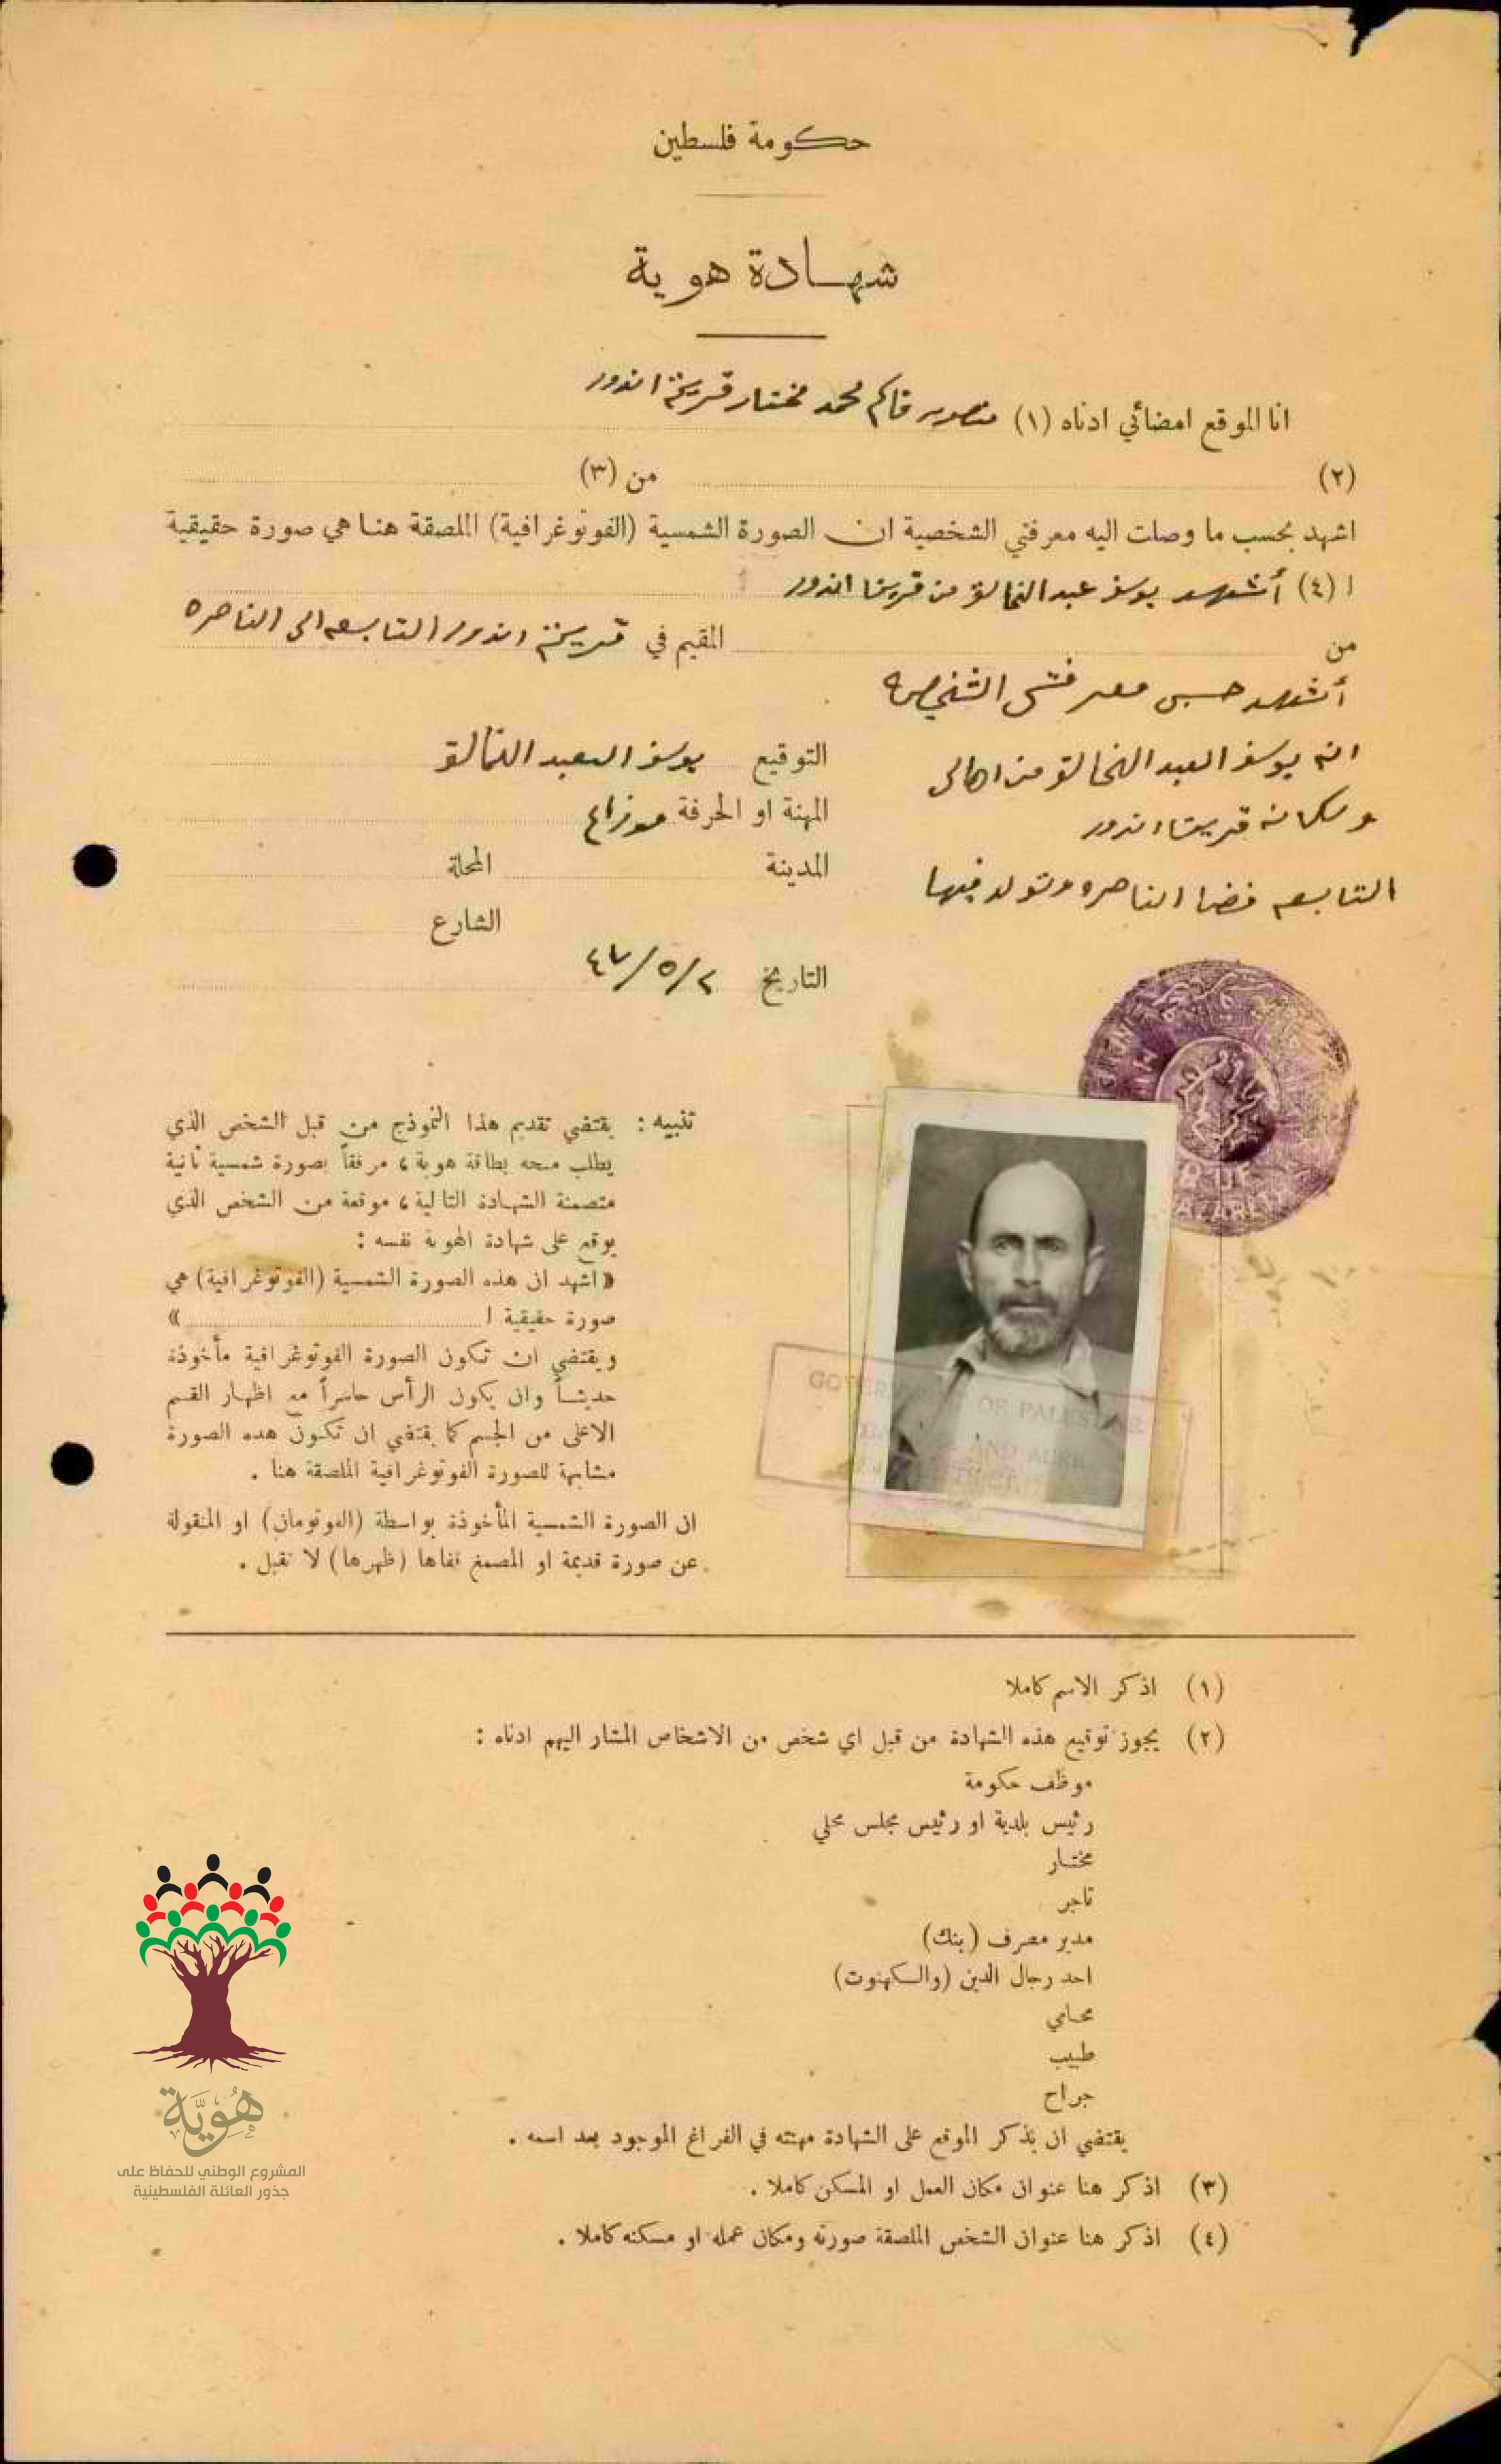 حكومة فلسطين
شهادة هوية
انا الموقع امضائي ادناه (١) منصور محمد مختار قرية اندور
(٢) من (٣)
اشهد بحسب ما وصلت اليه معرفتي الشخصية ان الصورة الشمسية (الفوتوغرافية) الملصقة هنا هي صورة حقيقية
ا (٤) أشهد يوسف عبد الخالق من قرية اندور
من المقيم في قرية اندور التابعه الى الناصره
أشهد حسب معرفتي الشخصيه
انه يوسف العبد الخالق من اهالي
وسكانه قرية اندور
التابعه قضا الناصره وتولد فيها
التوقيع يوسف العبد الخالق
المهنة او الحرفة
المدينة المحلة
الشارع
التاريخ ٢/٥/٤٧
تنبيه : يقتضي تقديم هذا النموذج من قبل الشخص الذي
يطلب منحه بطاقة هوية، مرفقاً بصورة شمسية ثانية
متضمنة الشهادة التالية، موقعة من الشخص الذي
يوقع على شهادة الهوية نفسه :
«اشهد ان هذه الصورة الشمسية (الفوتوغرافية) هي
صورة حقيقية ا »
ويقتضي ان تكون الصورة الفوتوغرافية مأخوذة
حديثاً وان يكون الرأس حاسراً مع اظهار القسم
الاعلى من الجسم كما يقتضي ان تكون هذه الصورة
مشابهة للصورة الفوتوغرافية الملصقة هنا .
ان الصورة الشمسية المأخوذة بواسطة (الفوتومان) او المنقولة
عن صورة قديمة او المصمغ قفاها (ظهرها) لا تقبل .
GOVERNMENT OF PALESTINE
(١) اذكر الاسم كاملا
(٢) يجوز توقيع هذه الشهادة من قبل اي شخص من الاشخاص المشار اليهم ادناه :
موظف حكومة
رئيس بلدية او رئيس مجلس محلي
مختار
تاجر
مدير مصرف (بنك)
احد رجال الدين (والكهنوت)
محامي
طبيب
جراح
يقتضي ان يذكر الموقع على الشهادة مهنته في الفراغ الموجود بعد اسمه .
(٣) اذكر هنا عنوان مكان العمل او المسكن كاملا .
(٤) اذكر هنا عنوان الشخص الملصقة صورته ومكان عمله او مسكنه كاملا .
هُوِيَّة
المشروع الوطني للحفاظ على
جذور العائلة الفلسطينية